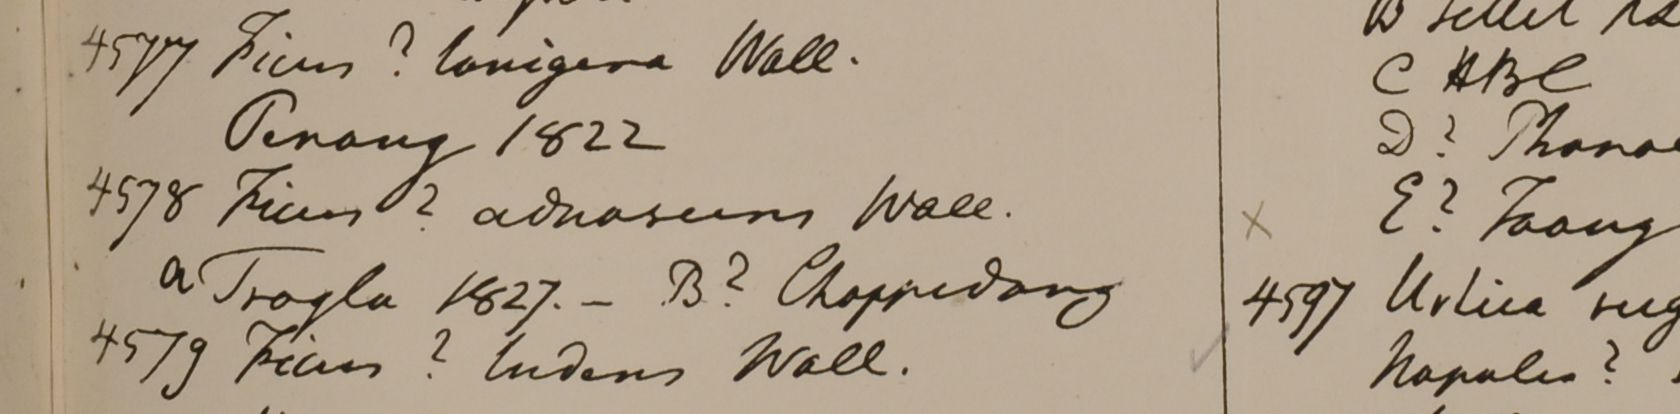 4577 Ficus ? lonigera Wall.
Penang 1822
4578 Ficus ? adnascens Wall.
a Trogla 1827. – B? Choppedong
4579 Ficus ? ludens Wall.
C HBC
D?
E? Taong
4597 Urtica
Napalia?